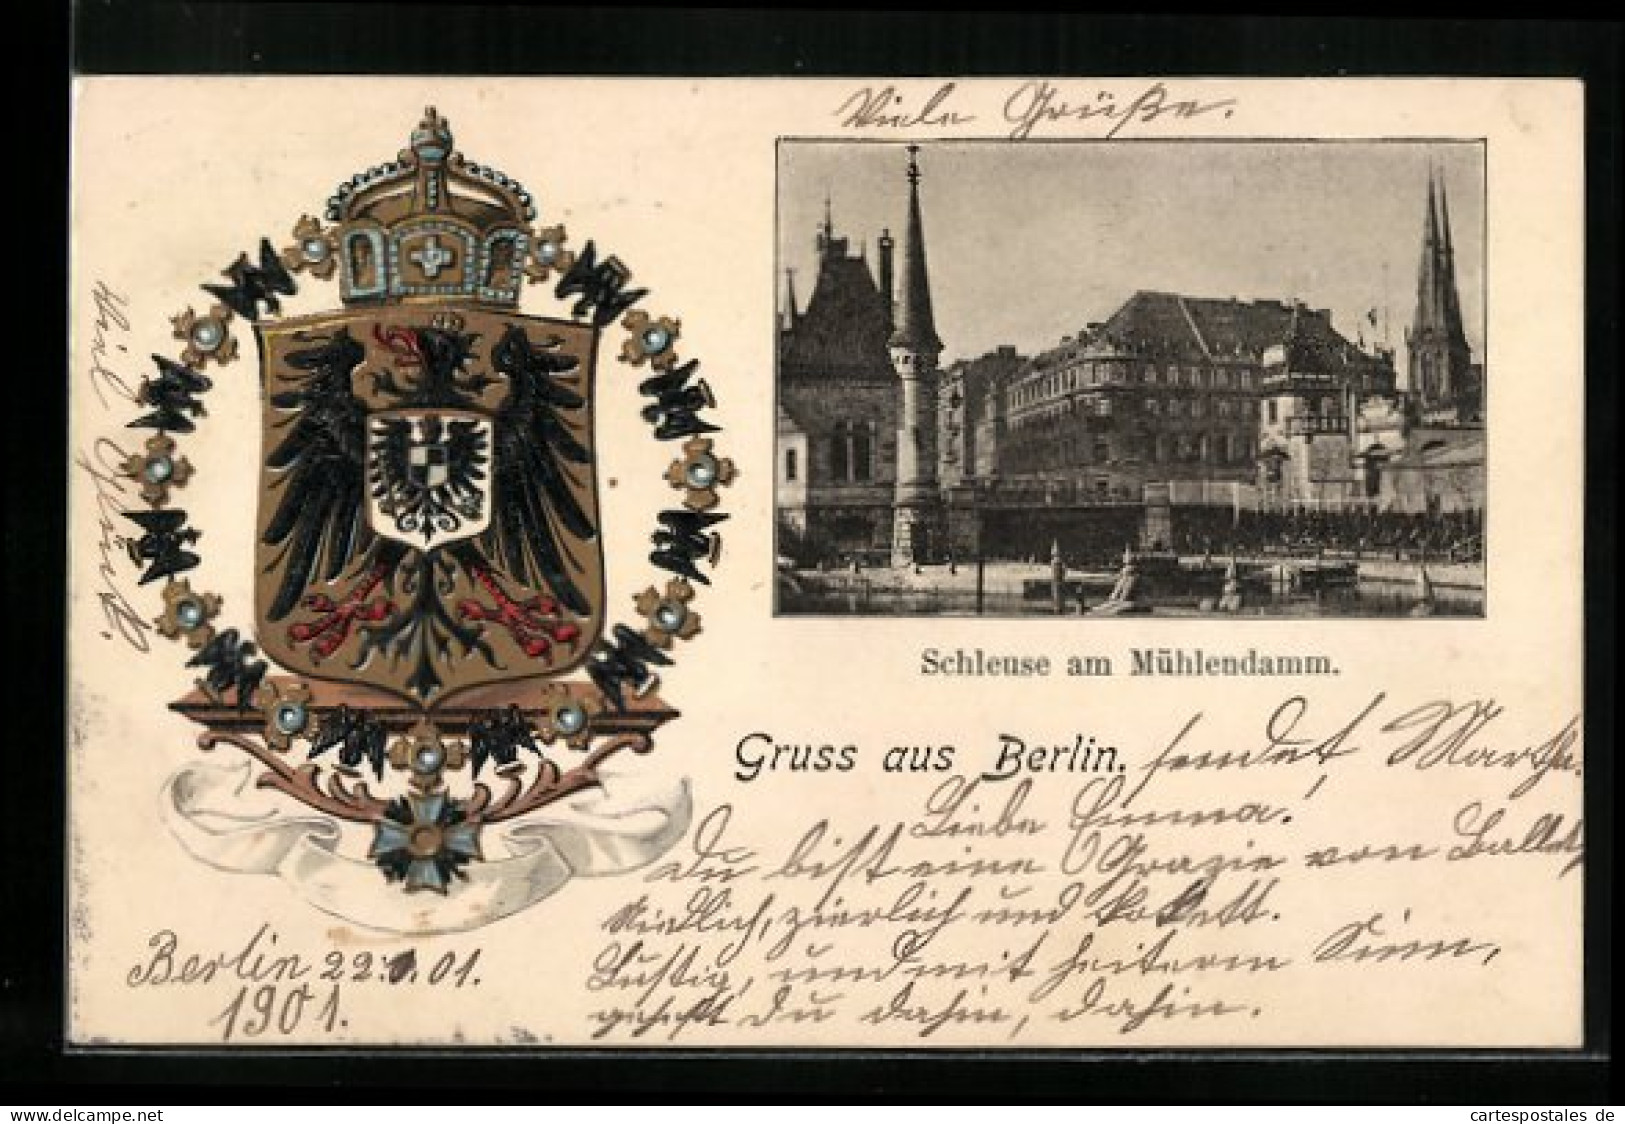 Viele Grüße.
Viel Glück.
Schleuse am Mühlendamm.
Gruss aus Berlin. sendet Martha.
Liebe Emma!
Du bist eine Grazie von Ballet,
Niedlich, zierlich und kokett.
Lustig, und mit heiterm Sinn,
gehst Du dahin, dahin.
Berlin 22.1.01.
1901.
cartespostales de